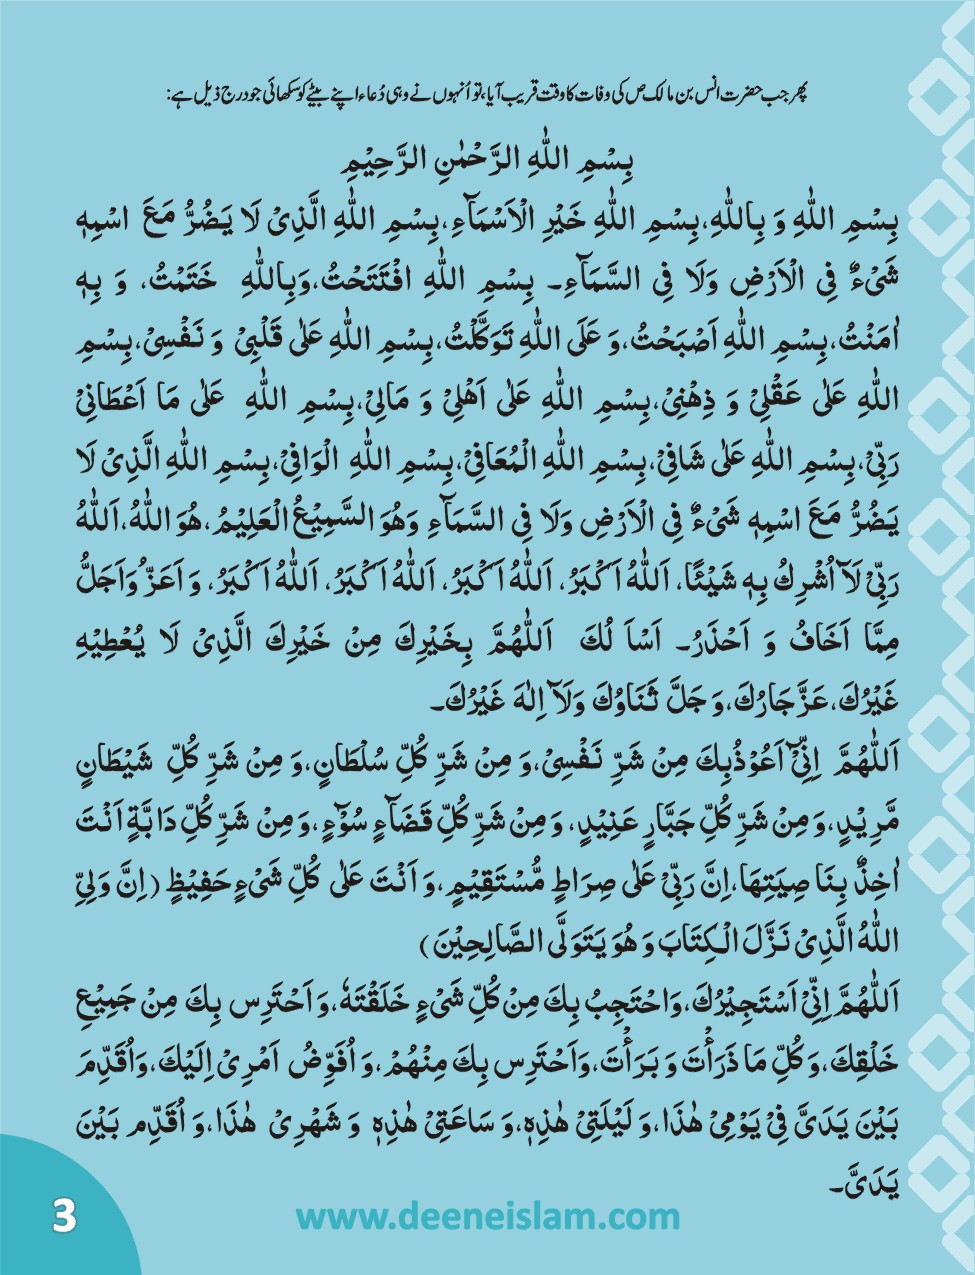 پھر جب حضرت انس بن مالک ص کی وفات کا وقت قریب آیا، تو اُنہوں نے وہی دُعاء اپنے بیٹے کو سکھائی جو درج ذیل ہے:
بِسْمِ اللّٰهِ الرَّحْمٰنِ الرَّحِيْمِ
بِسْمِ اللّٰهِ وَ بِاللّٰهِ، بِسْمِ اللّٰهِ خَيْرِ الْاَسْمَآءِ، بِسْمِ اللّٰهِ الَّذِىْ لَا يَضُرُّ مَعَ اسْمِهٖ
شَىْءٌ فِى الْاَرْضِ وَلَا فِى السَّمَآءِ۔ بِسْمِ اللّٰهِ افْتَتَحْتُ، وَبِاللّٰهِ خَتَمْتُ، وَ بِهٖ
اٰمَنْتُ، بِسْمِ اللّٰهِ اَصْبَحْتُ، وَ عَلَى اللّٰهِ تَوَكَّلْتُ، بِسْمِ اللّٰهِ عَلٰى قَلْبِىْ وَ نَفْسِىْ، بِسْمِ
اللّٰهِ عَلٰى عَقْلِىْ وَ ذِهْنِىْ، بِسْمِ اللّٰهِ عَلٰى اَهْلِىْ وَ مَالِىْ، بِسْمِ اللّٰهِ عَلٰى مَا اَعْطَانِىْ
رَبِّىْ، بِسْمِ اللّٰهِ عَلٰى شَافِىْ، بِسْمِ اللّٰهِ الْمُعَافِىْ، بِسْمِ اللّٰهِ الْوَافِىْ، بِسْمِ اللّٰهِ الَّذِىْ لَا
يَضُرُّ مَعَ اسْمِهٖ شَىْءٌ فِى الْاَرْضِ وَلَا فِى السَّمَآءِ وَهُوَ السَّمِيْعُ الْعَلِيْمُ، هُوَ اللّٰهُ، اَللّٰهُ
رَبِّىْ لَآ اُشْرِكُ بِهٖ شَيْئًا، اَللّٰهُ اَكْبَرُ، اَللّٰهُ اَكْبَرُ، اَللّٰهُ اَكْبَرُ، اَللّٰهُ اَكْبَرُ، وَ اَعَزُّ وَاَجَلُّ
مِمَّا اَخَافُ وَ اَحْذَرُ۔ اَسْاَ لُكَ اَللّٰهُمَّ بِخَيْرِكَ مِنْ خَيْرِكَ الَّذِىْ لَا يُعْطِيْهِ
غَيْرُكَ، عَزَّ جَارُكَ، وَ جَلَّ ثَنَاوُكَ وَلَآ اِلٰهَ غَيْرُكَ۔
اَللّٰهُمَّ اِنِّىْٓ اَعُوْذُبِكَ مِنْ شَرِّ نَفْسِىْ، وَ مِنْ شَرِّ كُلِّ سُلْطَانٍ، وَ مِنْ شَرِّ كُلِّ شَيْطَانٍ
مَّرِيْدٍ، وَ مِنْ شَرِّ كُلِّ جَبَّارٍ عَنِيْدٍ، وَ مِنْ شَرِّ كُلِّ قَضَآءٍ سُوْٓءٍ، وَ مِنْ شَرِّ كُلِّ دَابَّةٍ اَنْتَ
اٰخِذٌ بِنَا صِيَتِهَا، اِنَّ رَبِّىْ عَلٰى صِرَاطٍ مُّسْتَقِيْمٍ، وَ اَنْتَ عَلٰى كُلِّ شَىْءٍ حَفِيْظٍ (اِنَّ وَلِيِّ
اللّٰهُ الَّذِىْ نَزَّلَ الْكِتَابَ وَ هُوَ يَتَوَلَّى الصَّالِحِيْنَ)
اَللّٰهُمَّ اِنِّىْ اَسْتَجِيْرُكَ، وَاحْتَجِبُ بِكَ مِنْ كُلِّ شَىْءٍ خَلَقْتَهٗ، وَ اَحْتَرِس بِكَ مِنْ جَمِيْعِ
خَلْقِكَ، وَ كُلِّ مَا ذَرَأْتَ وَ بَرَأْتَ، وَاَحْتَرِس بِكَ مِنْهُمْ، وَ اُفَوِّضُ اَمْرِىْ اِلَيْكَ، وَاُقَدِّمَ
بَيْنَ يَدَىَّ فِىْ يَوْمِىْ هٰذَا، وَ لَيْلَتِىْ هٰذِهٖ، وَ سَاعَتِىْ هٰذِهٖ وَ شَهْرِىْ هٰذَا، وَ اُقَدِّم بَيْنَ
يَدَىَّ۔
3
www.deeneislam.com